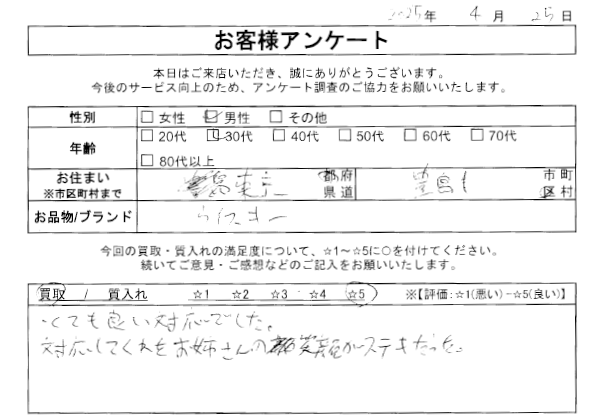 2025年 4月 25日
お客様アンケート
本日はご来店いただき、誠にありがとうございます。
今後のサービス向上のため、アンケート調査のご協力をお願いいたします。
性別 □女性 ☑男性 □その他
年齢 □20代 ☑30代 □40代 □50代 □60代 □70代
□80代以上
お住まい ※市区町村まで 東京 都府県道 豊島 市町区村
お品物/ブランド
今回の買取・質入れの満足度について、☆1～☆5に○を付けてください。
続いてご意見・ご感想などのご記入をお願いいたします。
買取 / 質入れ ☆1 ☆2 ☆3 ☆4 ☆5 ※【評価:☆1(悪い)-☆5(良い)】
とても良い対応でした。
対応してくれたお姉さんの笑顔がステキだった。